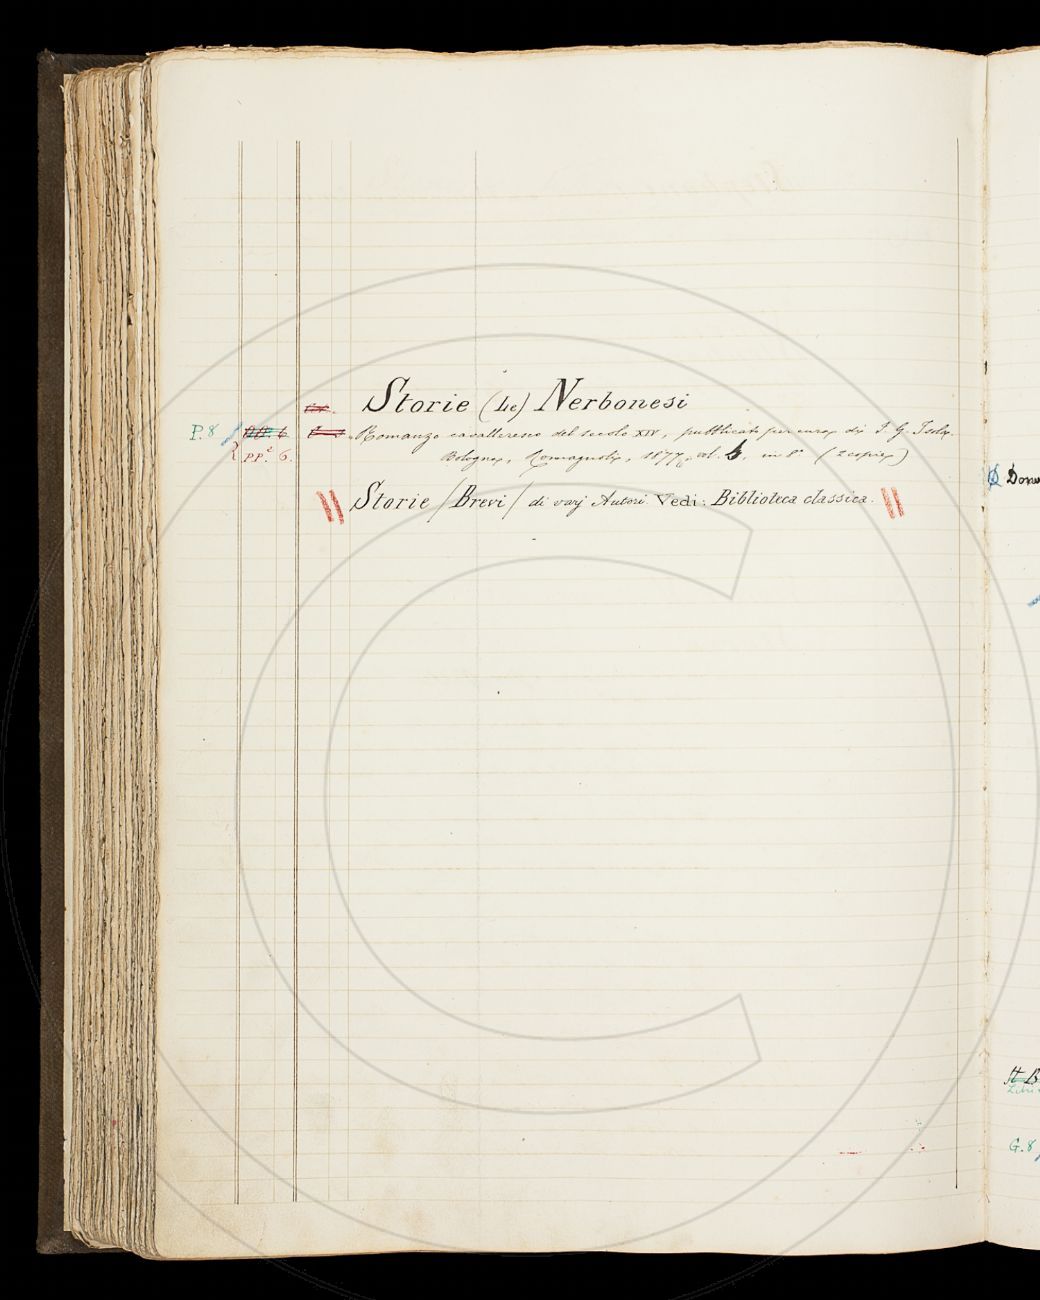 Storie (Le) Nerbonesi
P. 8 Romanzo cavalleresco del secolo XIV, pubblicato per cura di I. G. Isola.
PP.e 6. Bologna, Romagnoli, 1877, vol. in 8° (2 copie)
Storie (Brevi) di varj Autori. Vedi: Biblioteca classica.
G. 8